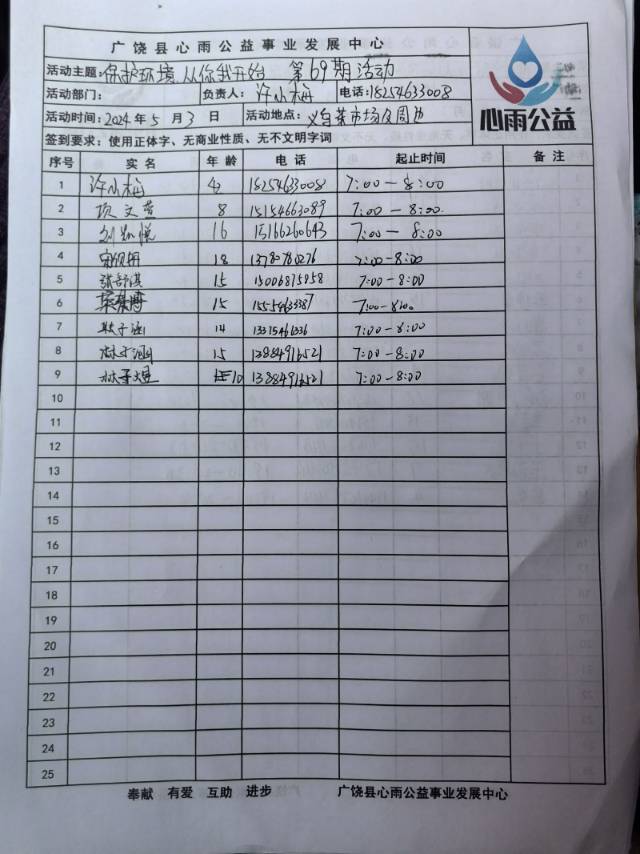 广饶县心雨公益事业发展中心
活动主题: 保护环境 从你我开始 第69期活动
活动部门: 负责人: 许小梅 电话: 18254633008
活动时间: 2024年5月3日 活动地点: 义乌菜市场及周边
签到要求: 使用正体字、无商业性质、无不文明字词
心雨公益
序号 实名 年龄 电话 起止时间 备注
1 许小梅 18254633008 7:00-8:00
2 8 15154663089 7:00-8:00
3 16 15166260643 7:00-8:00
4 18 13780780276 7:00-8:00
5 15 15006875858 7:00-8:00
6 15 7:00-8:00
7 14 7:00-8:00
8 15 7:00-8:00
9 10 7:00-8:00
10
11
12
13
14
15
16
17
18
19
20
21
22
23
24
25
奉献 有爱 互助 进步 广饶县心雨公益事业发展中心